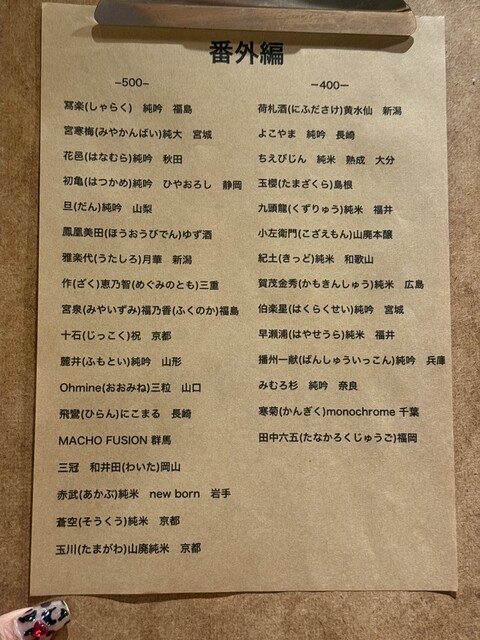 番外編
–500–
冩楽(しゃらく) 純吟 福島
宮寒梅(みやかんばい)純大 宮城
花邑(はなむら)純吟 秋田
初亀(はつかめ)純吟 ひやおろし 静岡
旦(だん)純吟 山梨
鳳凰美田(ほうおうびでん)ゆず酒
雅楽代(うたしろ)月華 新潟
作(ざく)恵乃智(めぐみのとも)三重
宮泉(みやいずみ)福乃香(ふくのか)福島
十石(じっこく)祝 京都
麓井(ふもとい)純吟 山形
Ohmine(おおみね)三粒 山口
飛鸞(ひらん)にこまる 長崎
MACHO FUSION 群馬
三冠 和井田(わいた)岡山
赤武(あかぶ)純米 new born 岩手
蒼空(そうくう)純米 京都
玉川(たまがわ)山廃純米 京都
–400–
荷札酒(にふださけ)黄水仙 新潟
よこやま 純吟 長崎
ちえびじん 純米 熟成 大分
玉櫻(たまざくら)島根
九頭龍(くずりゅう)純米 福井
小左衛門(こざえもん)山廃本醸
紀土(きっど)純米 和歌山
賀茂金秀(かもきんしゅう)純米 広島
伯楽星(はくらくせい)純吟 宮城
早瀬浦(はやせうら)純米 福井
播州一献(ばんしゅういっこん)純吟 兵庫
みむろ杉 純吟 奈良
寒菊(かんぎく)monochrome 千葉
田中六五(たなかろくじゅうご)福岡